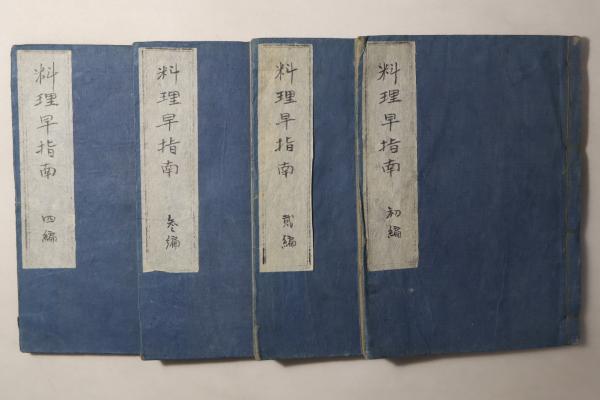 料理早指南 初編
料理早指南 貮編
料理早指南 叁編
料理早指南 四編